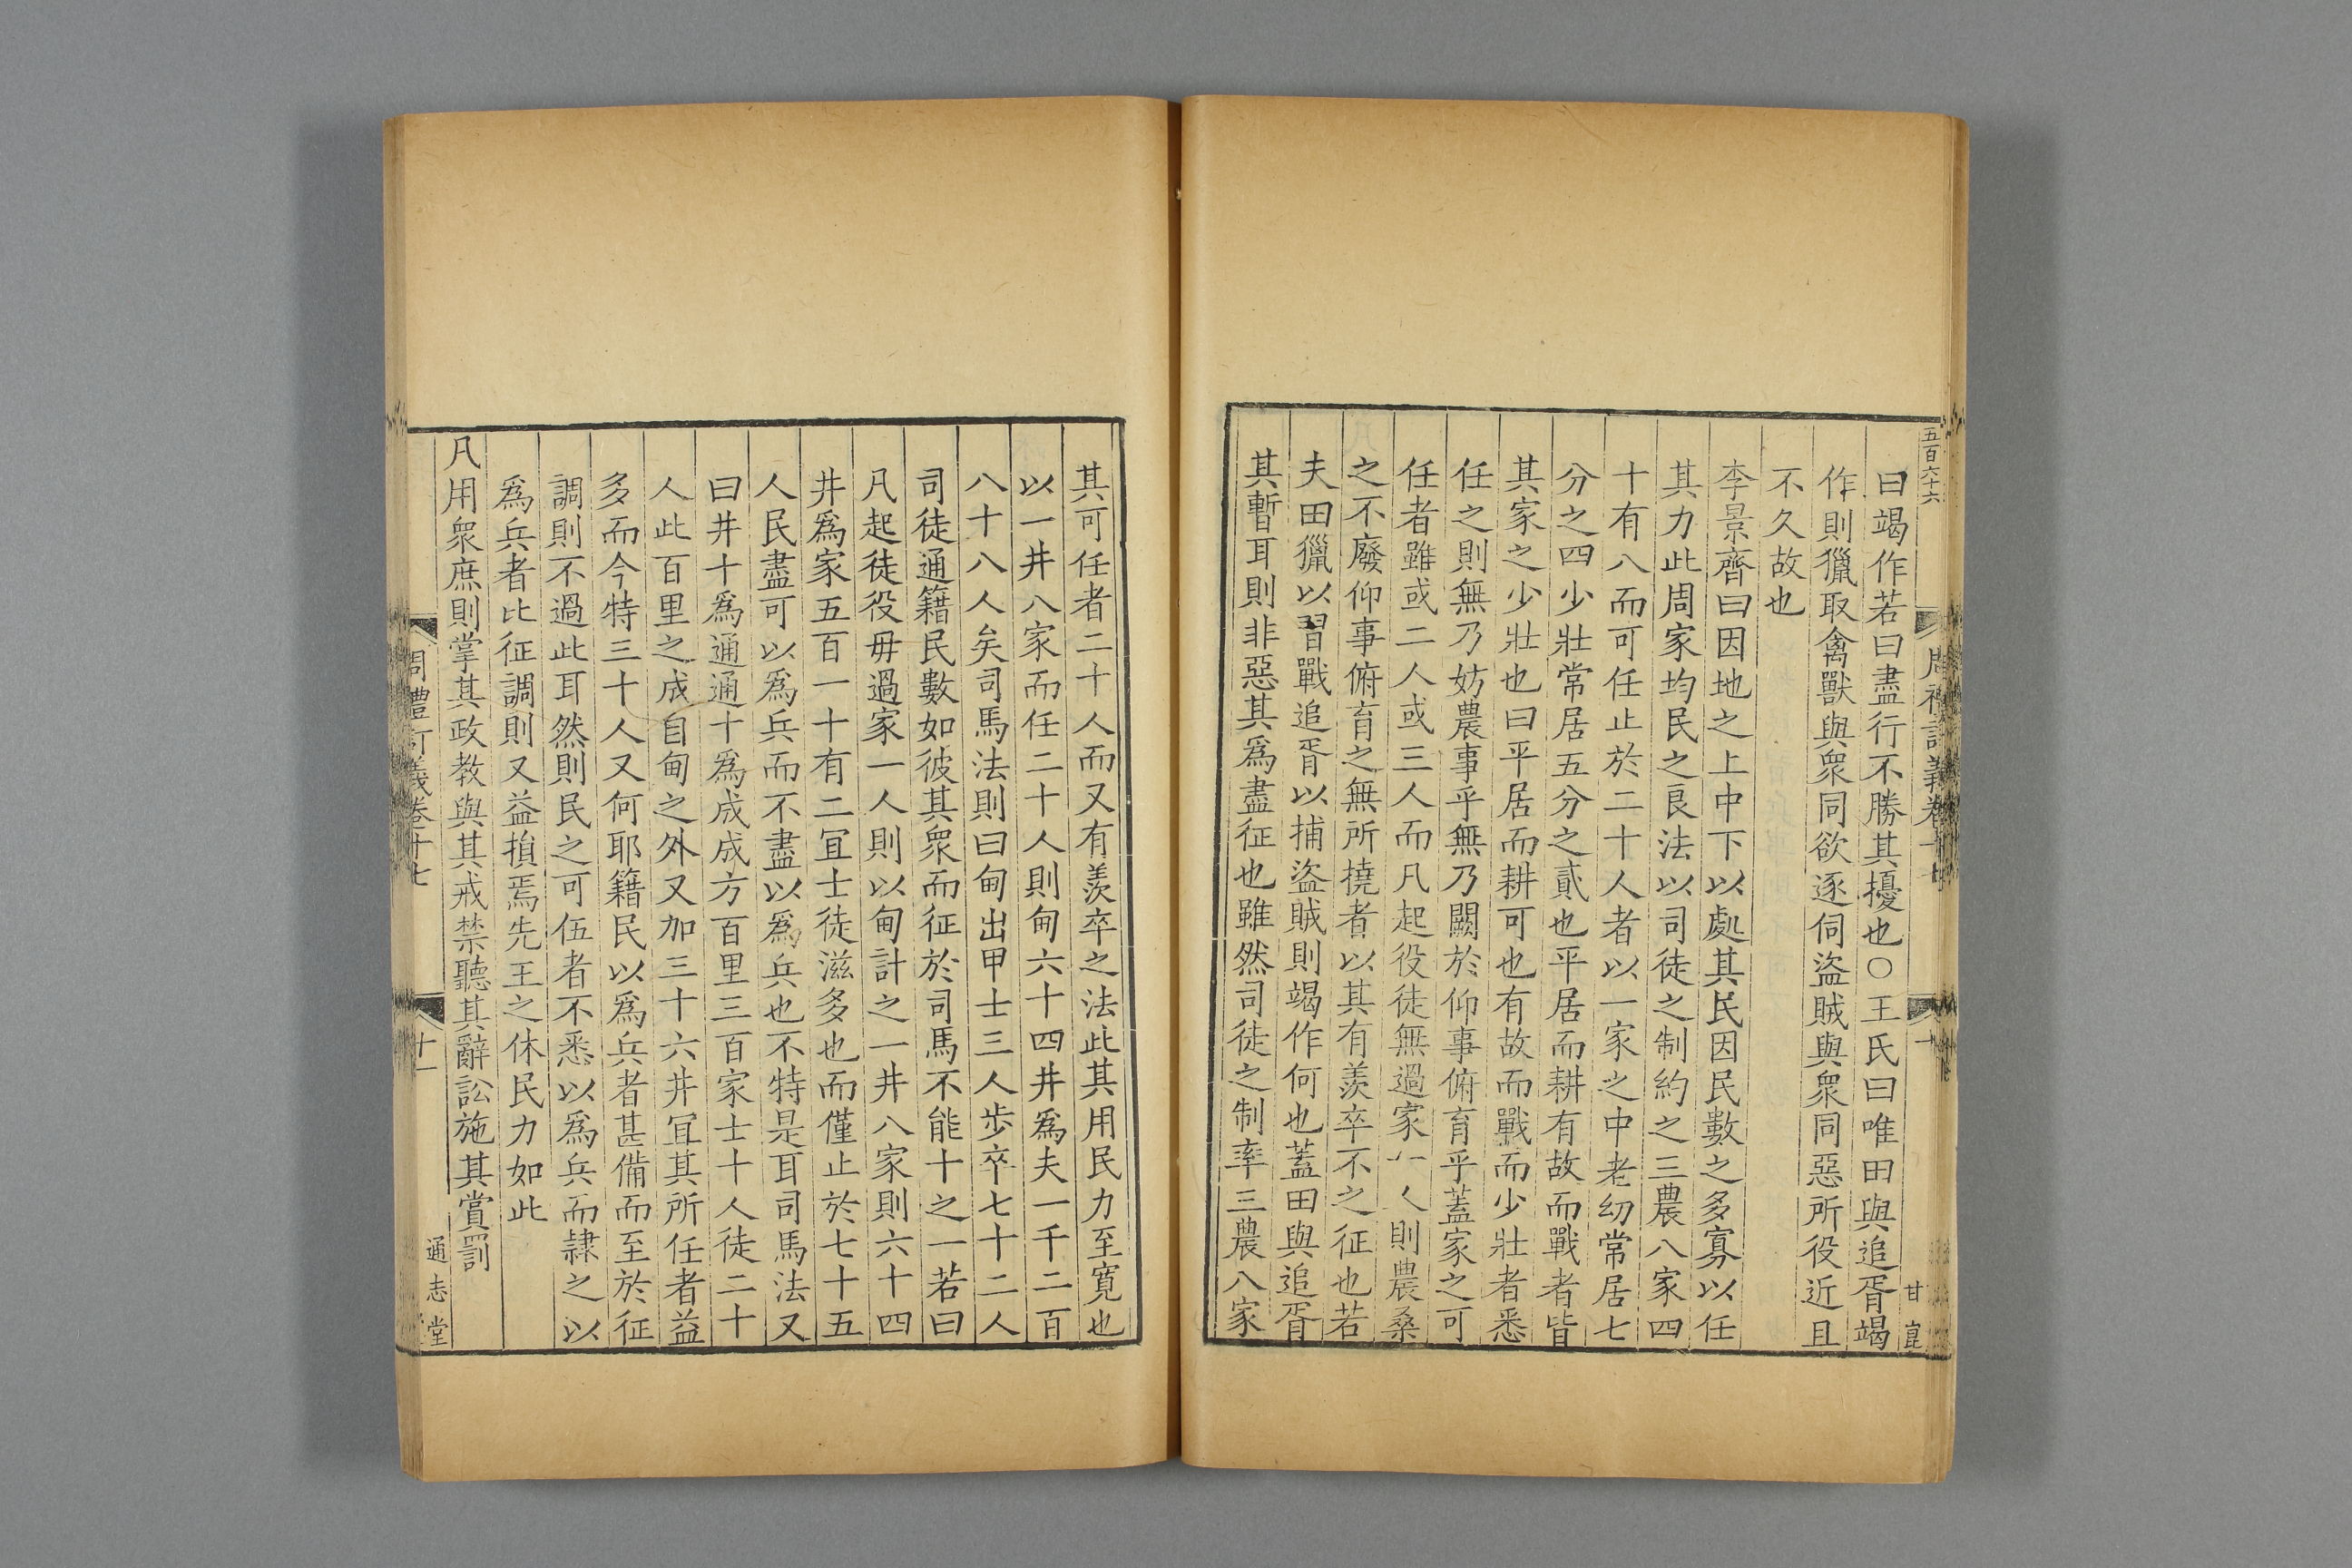 五百六十六
周禮訂義卷十七
甘
曰竭作若曰盡行不勝其擾也○王氏曰唯田與追胥竭
作則獵取禽獸與衆同欲逐伺盜賊與衆同惡所役近且
不久故也
李景齊曰因地之上中下以處其民因民數之多寡以任
其力此周家均民之良法以司徒之制約之三農八家四
十有八而可任止於二十人者以一家之中老幼常居七
分之四少壯常居五分之貳也平居而耕有故而戰者皆
其家之少壯也曰平居而耕可也有故而戰而少壯者悉
任之則無乃妨農事乎無乃闕於仰事俯育乎蓋家之可
任者雖或二人或三人而凡起役徒無過家一人則農桑
之不廢仰事俯育之無所撓者以其有羨卒不之征也若
夫田獵以習戰追胥以捕盜賊則竭作何也蓋田與追胥
其暫耳則非惡其爲盡征也雖然司徒之制率三農八家
其可任者二十人而又有羨卒之法此其用民力至寬也
以一井八家而任二十人則甸六十四井爲夫一千二百
八十八人矣司馬法則曰甸出甲士三人步卒七十二人
司徒通籍民數如彼其衆而征於司馬不能十之一若曰
凡起徒役毋過家一人則以甸計之一井八家則六十四
井爲家五百一十有二冝士徒滋多也而僅止於七十五
人民盡可以爲兵而不盡以爲兵也不特是耳司馬法又
曰井十爲通通十爲成成方百里三百家士十人徒二十
人此百里之成自甸之外又加三十六井冝其所任者益
多而今特三十人又何耶籍民以爲兵者甚備而至於征
調則不過此耳然則民之可伍者不悉以爲兵而隷之以
爲兵者比征調則又益損焉先王之休民力如此
凡用衆庶則掌其政教與其戒禁聽其辭訟施其賞罰
周禮訂義卷十七
十一
通志堂